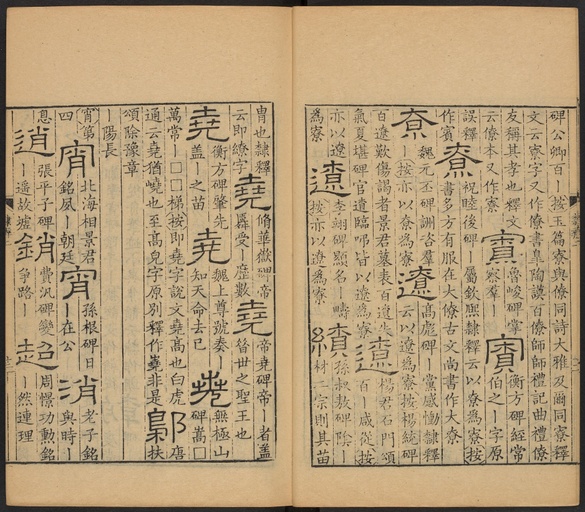 碑公卿百丨按玉篇寮與僚同詩大雅及爾同寮釋
文云寮字又作僚書皐陶謨百僚師師禮記曲禮僚
友稱其孝也釋文寮魯峻碑掌寮衡方碑經常
云僚本又作寮察羣丨伯之丨字原
誤釋作賓寮祝睦後碑丨屬欽熙隸釋云以寮爲寮按
作賓書多方有服在大僚古文尚書作大寮
寮魏元丕碑詶咨羣遼高彪碑丨黨感慟隸釋
丨按亦以寮爲寮云以遼爲寮按楊統碑
百遼歎傷謁者景君墓表百遼遼楊君石門頌
氣夏堪碑官遼臨弔皆以遼爲寮百丨咸從按
亦以遼遼李翊碑顯名丨疇繚孫叔敖碑陰丨
爲寮按亦以遼爲寮材二宗則其苗
胄也隸釋堯脩華嶽碑帝堯帝堯碑帝丨者蓋
云即繚字舜受丨歷數昔世之聖王也
堯衡方碑肇先堯魏上尊號奏丨堯無極山
蓋丨之苗知天命去已碑嵩□
萬常丨□□梯按即堯字說文堯高也白虎郋唐
通云堯猶嶢也至高皃字原別釋作嶤非是梟扶
頌除豫章
丨陽長
宵第宵北海相景君宵孫根碑日消老子銘
四銘風丨朝廷丨在公與時丨
息逍張平子碑銷費汎碑變迢周憬功勳銘
丨遥故墟爭路丨丨然連理